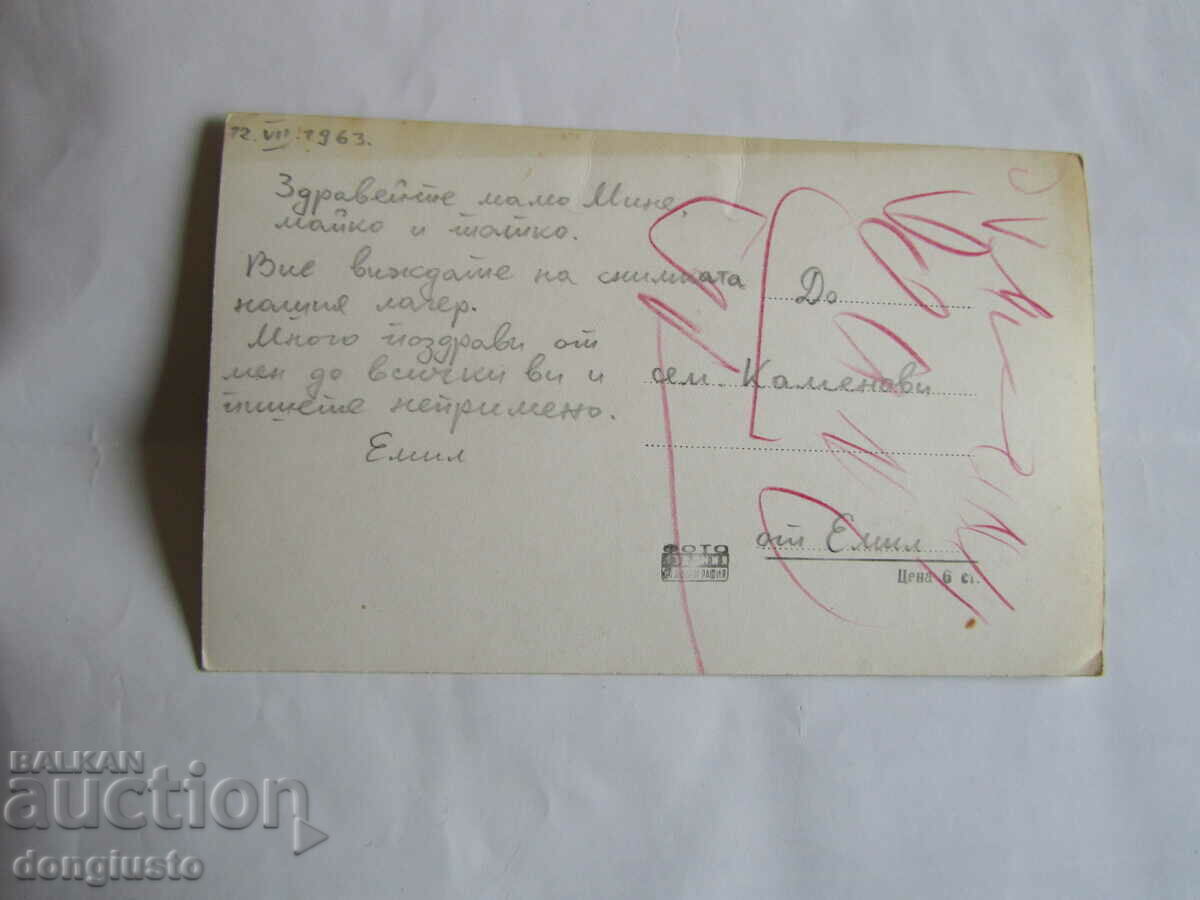 12.VII.1963.
Здравейте мамо Мине,
майко и татко.
Вие виждате на снимката
нашия лагер.
Много поздрави от
мен до всички ви и
пишете непримено.
Емил
До
сем. Каменови
от Емил
ФОТО
Цена 6 ст.
BALKAN
auction
dongiusto